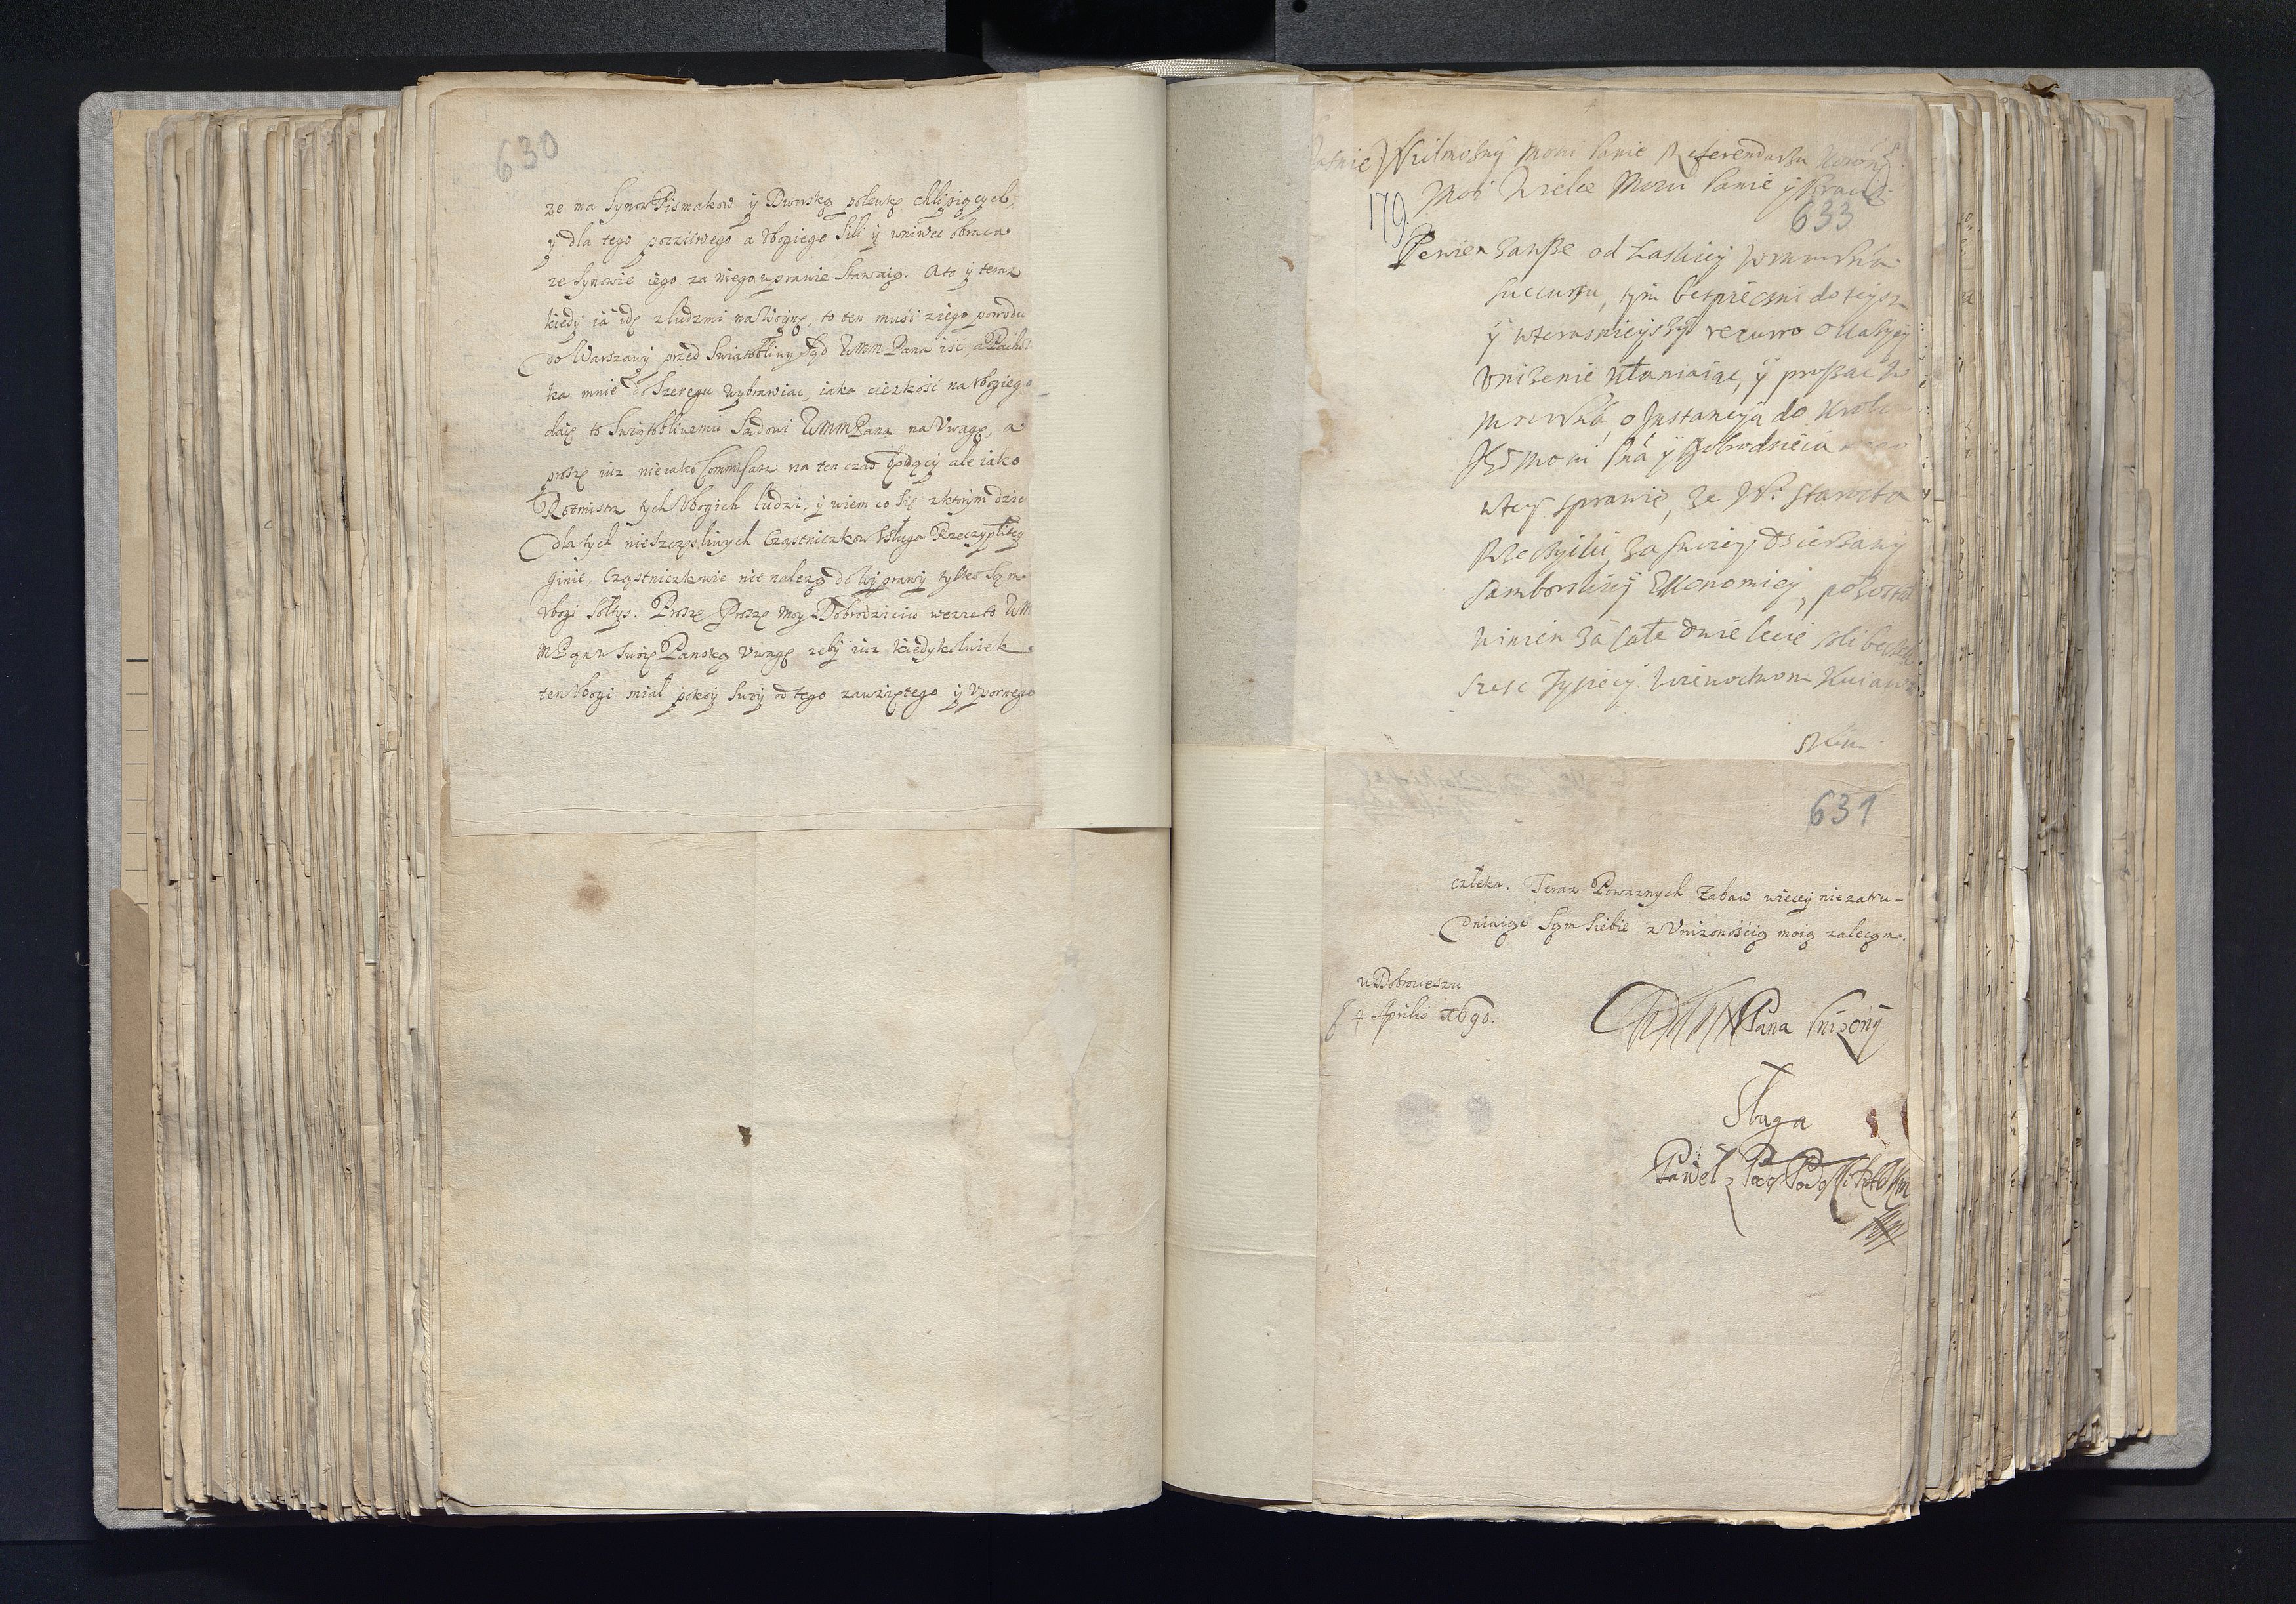 630
ze ma Synow Pismakow y Dworską polewkę chlipiących,
y dla tego poczciwego a Vbogiego Sili y wniwec obraca
ze Synowie iego za niego wprawie Stawaią. Ato y teraz
kiedy ia idę z ludzmi na Woynę, to ten musi ziego powodu
do Warszawy przed Swiątobliwy Sąd WMM Pana isć, a Pachoł
ka mnie do Szeregu wybrawiac, iaka cięzkość na Vbogiego
daię to Swiątobliwemu Sądowi WMMPana na Vwagę, a
proszę iuz nie iako Commisarz na ten czas będący ale iako
Rotmistrz tych Vbogich ludzi, y wiem co się zktorym dzie
dla tych nieszczęsliwych Cząstniczkow Vsługa Rzeczyplitey
ginie, Cząstniczkowie nie nalezą do Wyprawy tylko Sam
Vbogi Sołtys. Proszę Proszę moy Dobrodzieiu wezze to WM
MPan w Swoię Panską Vwagę zeby iuz kiedykolwiek
ten Vbogi miał pokoy Swoy od tego zawziętego y Vpornego
Wielmozny Mosci Panie Referendarzu Koron
Moi Wielce Mosci Panie y
179.
633
Pewien zawsze od łaskiey
succursu, tym bespieczni do teysz
y wterasnieyszy recurro okazyey
Vnizenie kłaniaiąc, y prosząc
o Instancyą do Krola
y Dobrodzieia
wtey sprawie, ze JP. Starosta
za swoiey dzierzawy
Samborskiey Ekonomiey, pozostał
winien za całe dwie lecie
szesc Tysięcy Woiewodzwom Kuiaws
skim
631
człeka. Teraz Powaznych Zabaw więcey niezatru-
dniaiąc Sąm Siebie z Vnizonością moią zalecąm.
w Dobrocieszu
4 Aprilis 1690.
Pana Vnizony
Sługa
Paweł z